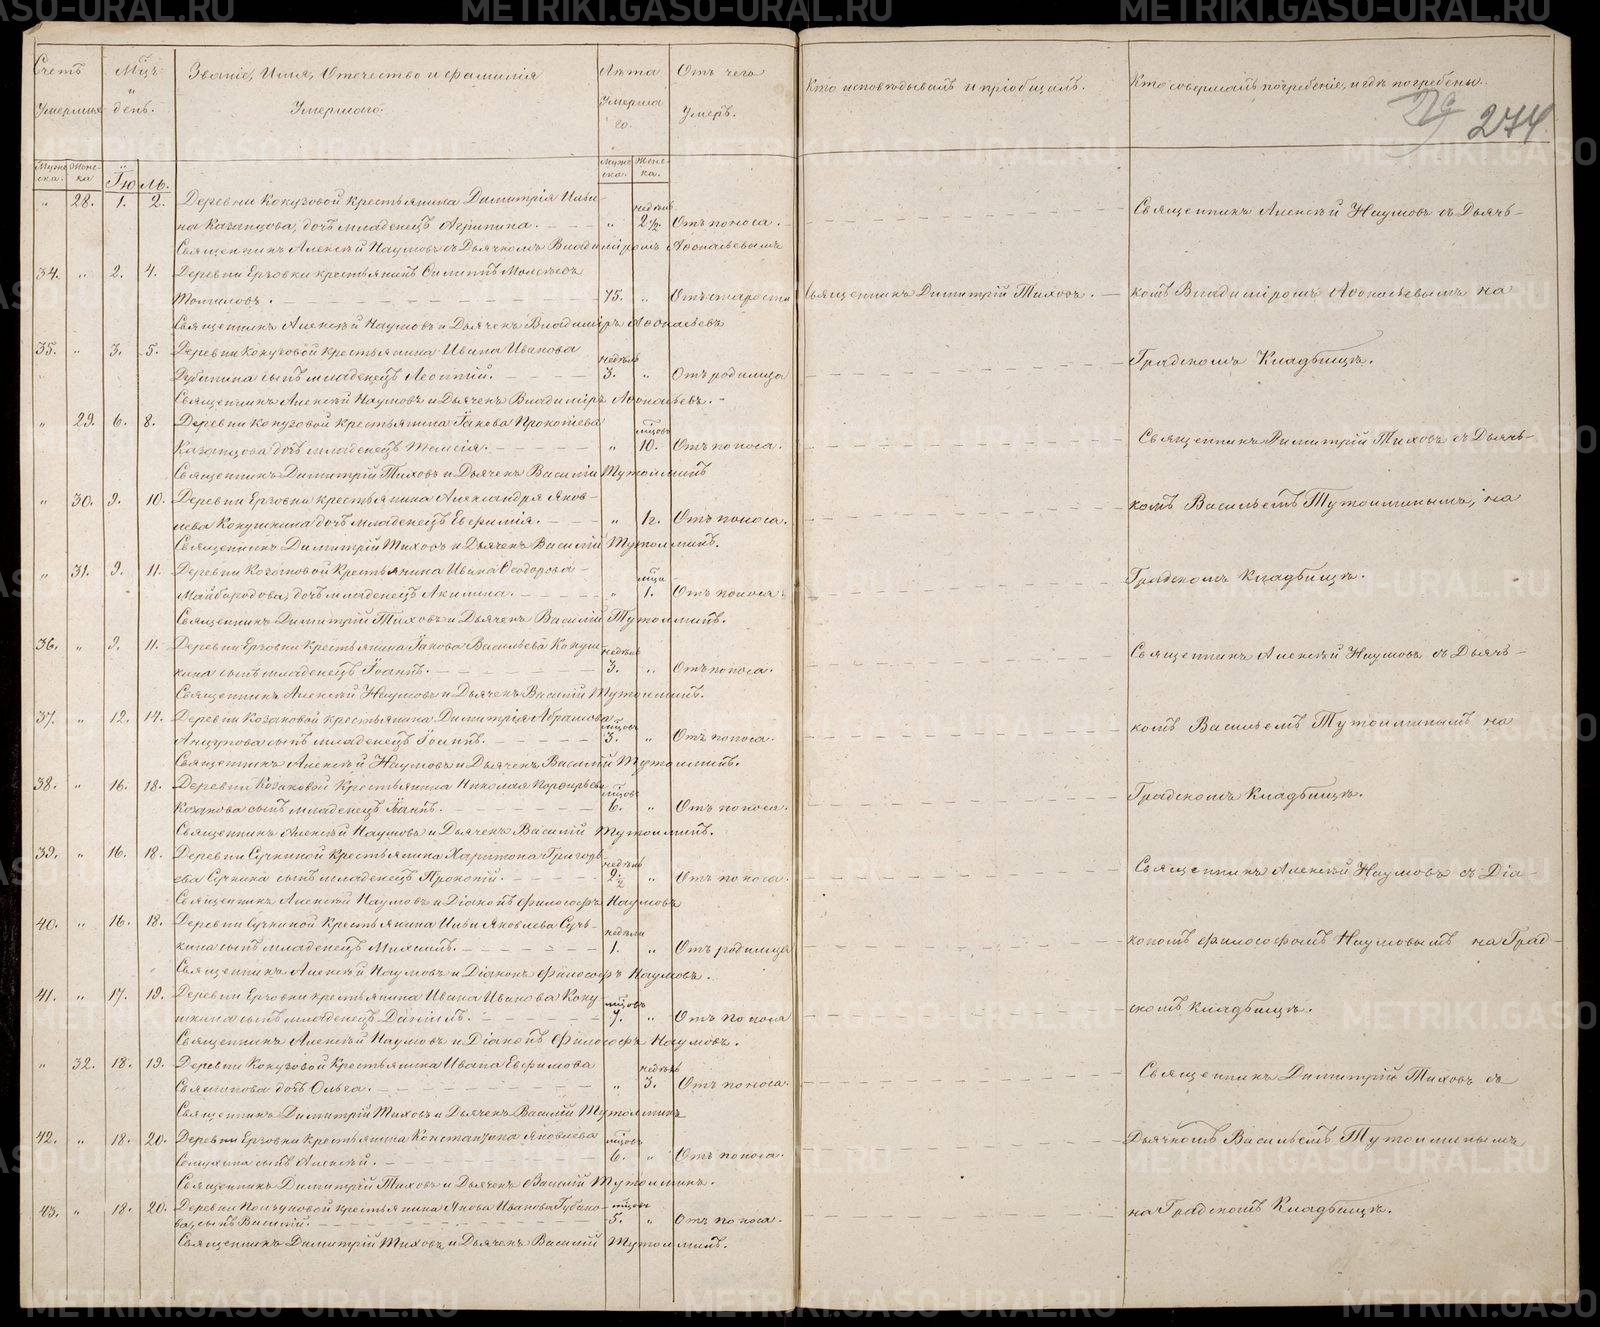 Счетъ Умершихъ
Мѣсяцъ и день.
Званіе, Имя, Отчество и фамилія Умершаго.
Лѣта Умершаго.
Отъ чего Умеръ.
Кто исповѣдывалъ и пріобщалъ.
Кто совершалъ погребеніе, и гдѣ погребены.
274
Мужеска. Женска Іюль. Мужеска. Женска.
" 28. 1. 2. Деревни Кокузовой крестьянина Димитрія Ильи-
на Казанцова, дочь младенецъ Агрипина. " недѣль 2½. Отъ поноса.
Священникъ Алексѣй Наумовъ съ Дьячкомъ Владиміромъ Аѳонасьевымъ
34. " 2. 4. Деревни Ерзовки крестьянинъ Филиппъ Моисѣевъ
Томиловъ. 75. " Отъ старости Священникъ Димитрій Тиховъ.
Священникъ Алексѣй Наумовъ и Дьячекъ Владиміръ Аѳонасьевъ
35. " 3. 5. Деревни Кокузовой крестьянина Ивана Иванова
сынъ младенецъ Леонтій. недѣль 3. " Отъ родимца
Священникъ Алексѣй Наумовъ и Дьячекъ Владиміръ Аѳонасьевъ.
" 29. 6. 8. Деревни Кокузовой крестьянина Іакова Прокопьева
Казанцова дочь младенецъ Таисія. " мѣсяцовъ 10. Отъ поноса.
Священникъ Димитрій Тиховъ и Дьячекъ Василій Тутолминъ
" 30. 9. 10. Деревни Ерзовки крестьянина Александра Яков-
лева Кокушкина дочь младенецъ Евфимія. " ½. Отъ поноса.
Священникъ Димитрій Тиховъ и Дьячекъ Василій Тутолминъ.
" 31. 9. 11. Деревни Козаковой Крестьянина Ивана Ѳеодорова
Майбородова, дочь младенецъ Акилина. " мѣсяца 1. Отъ поноса.
Священникъ Димитрій Тиховъ и Дьячекъ Василій Тутолминъ.
36. " 9. 11. Деревни Ерзовки Крестьянина Іакова Васильева Кокуш-
кина сынъ младенецъ Іоаннъ. недѣль 3. " Отъ поноса.
Священникъ Алексѣй Наумовъ и Дьячекъ Василій Тутолминъ.
37. " 12. 14. Деревни Козаковой крестьянина Димитрія Абрамова
Анцупова сынъ младенецъ Іоаннъ. мѣсяцовъ 3. " Отъ поноса.
Священникъ Алексѣй Наумовъ и Дьячекъ Василій Тутолминъ.
38. " 16. 18. Деревни Козаковой Крестьянина Николая Порфирьева
Козакова сынъ младенецъ Іоаннъ. мѣсяцовъ 6. " Отъ поноса.
Священникъ Алексѣй Наумовъ и Дьячекъ Василій Тутолминъ.
39. " 16. 18. Деревни Сучкиной Крестьянина Харитона Григорь-
ева Сучкина сынъ младенецъ Прокопій. недѣль 2½ " Отъ поноса.
Священникъ Алексѣй Наумовъ и Діаконъ Философъ Наумовъ
40. " 16. 18. Деревни Сучкиной Крестьянина Ильи Яковлева Суч-
кина сынъ младенецъ Михаилъ. недѣли 1. " Отъ родимца
Священникъ Алексѣй Наумовъ и Діаконъ Философъ Наумовъ.
41. " 17. 19. Деревни Ерзовки крестьянина Ивана Иванова Коку-
шкина сынъ младенецъ Даніилъ. мѣсяцовъ 7. " Отъ поноса
Священникъ Алексѣй Наумовъ и Діаконъ Философъ Наумовъ.
" 32. 18. 19. Деревни Кокузовой Крестьянина Ивана Евфимова
дочь Ольга. " недѣль 3. Отъ поноса.
Священникъ Димитрій Тиховъ и Дьячекъ Василій Тутолминъ
42. " 18. 20. Деревни Ерзовки крестьянина Константина Яковлева
сынъ Алексѣй. мѣсяцовъ 6. " Отъ поноса.
Священникъ Димитрій Тиховъ и Дьячекъ Василій Тутолминъ.
43. " 18. 20. Деревни крестьянина Якова Иванова Губано-
ва, сынъ Василій. мѣсяцовъ 5. " Отъ поноса.
Священникъ Димитрій Тиховъ и Дьячекъ Василій Тутолминъ.
Священникъ Алексѣй Наумовъ съ Дьяч-
комъ Владиміромъ Аѳонасьевымъ на
Градскомъ Кладбищѣ.
Священникъ Димитрій Тиховъ съ Дьяч-
комъ Васильемъ Тутолминымъ, на
Градскомъ Кладбищѣ.
Священникъ Алексѣй Наумовъ съ Дьяч-
комъ Васильемъ Тутолминымъ на
Градскомъ Кладбищѣ.
Священникъ Алексѣй Наумовъ съ Діа-
кономъ Философомъ Наумовымъ на Град-
скомъ Кладбищѣ.
Священникъ Димитрій Тиховъ съ
Дьячкомъ Васильемъ Тутолминымъ
на Градскомъ Кладбищѣ.
METRIKI.GASO-URAL.RU